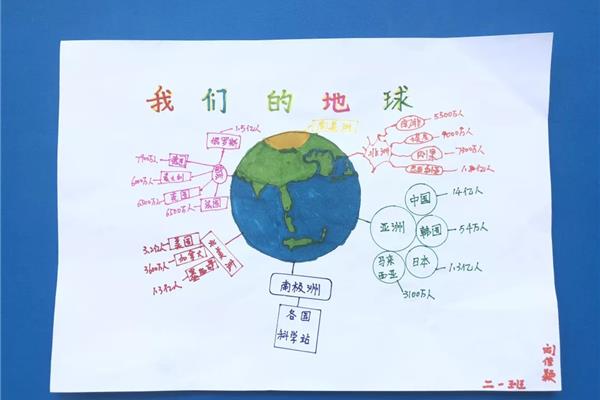 我们的地球
南美洲
1.5亿人
俄罗斯
欧洲
7900万人
德国
6000万人
意大利
6500万人
英国
6500万人
法国
非洲
南非
5500万人
埃及
9000万人
刚果
7800万人
3.2亿人
美国
3600万人
加拿大
1.3亿人
墨西哥
北美洲
亚洲
中国
14亿人
韩国
54万人
日本
1.3亿人
马来西亚
3100万人
南极洲
各国
科学站
二一班